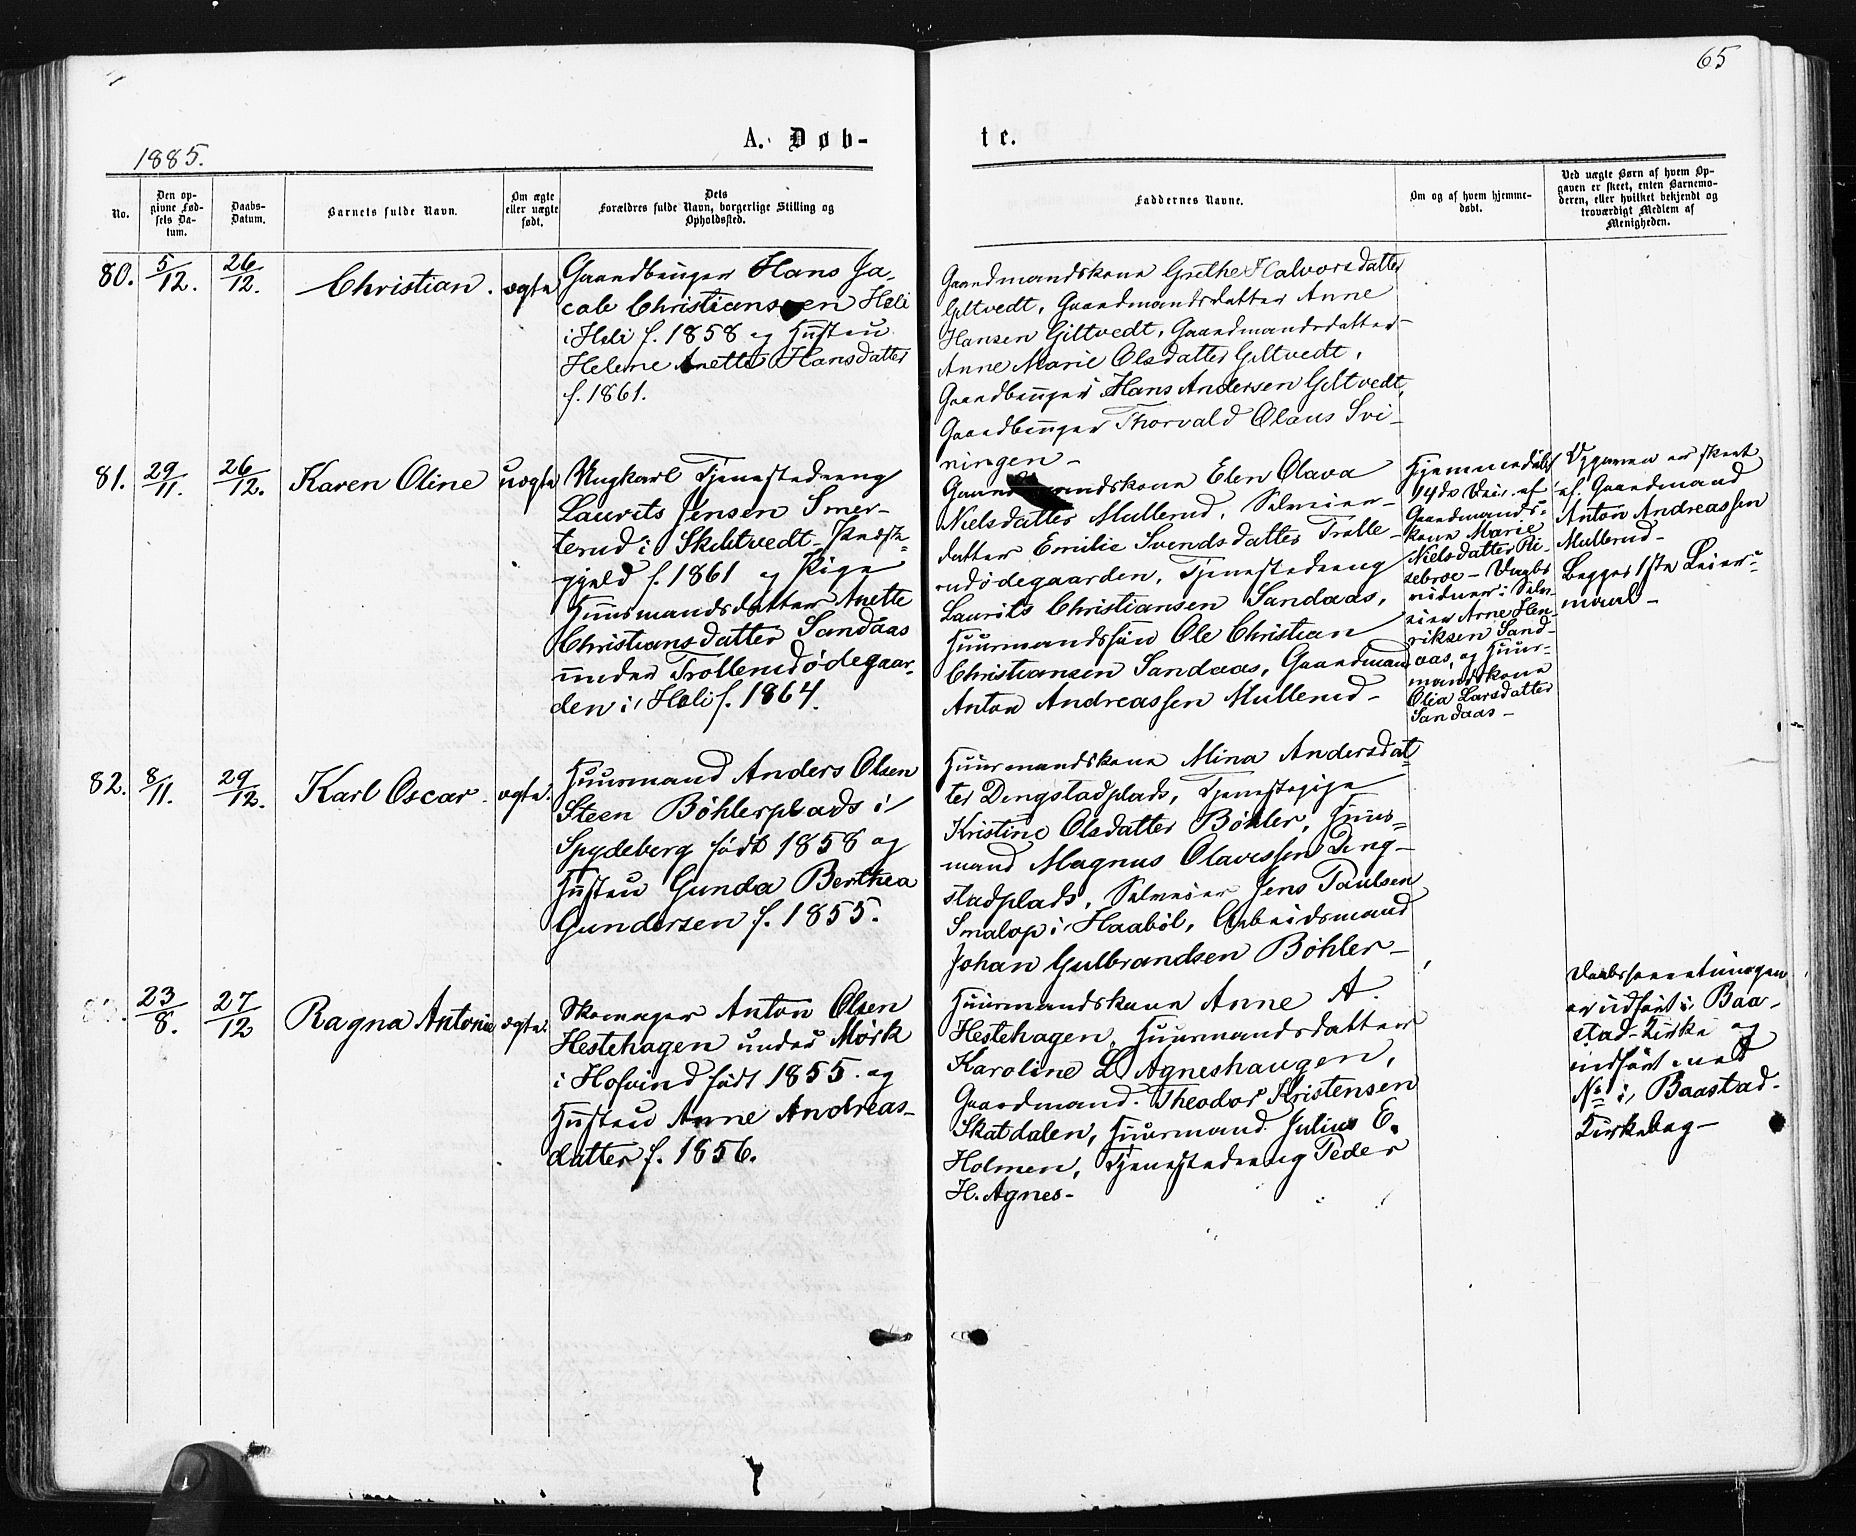 65
1885.
A. Døb-
te.
No.
Den op-
givne Fød-
sels Da-
tum.
Daabs-
Datum.
Barnets fulde Navn.
Om ægte
eller uægte
født.
Dets
Forældres fulde Navn, borgerlige Stilling og
Opholdssted.
Faddernes Navne.
Om og af hvem hjemme-
døbt.
Ved uægte Børn af hvem Op-
gaven er skeet, enten Barnemo-
deren, eller hvilket bekjendt og
troværdigt Medlem af
Menigheden.
80.
5/12.
26/12.
Christian
ægte
Gaardbruger Hans Ja-
cob Christiansen Hæli
i Hæli f. 1858 og Hustru
Helene Anette Hansdatter
f. 1861.
Gaardmandskone Grethe Halvorsdatter
Giltvedt, Gaardmandsdatter Anne
Hansen Giltvedt, Gaardmandsdatter
Anne Marie Olsdatter Giltvedt,
Gaardbruger Hans Andersen Giltvedt,
Gaardbruger Thorvald Olaus Svi-
ningen
81.
29/11.
26/12.
Karen Oline
uægte
Ungkarl Tjenestedreng
Laurits Jensen Smer-
terud i Skibtvedt Præste-
gjeld f. 1861 og Pige
Huusmandsdatter Anette
Christiansdatter Sandaas
under Trollerudødegaar-
den i Hæli f. 1864.
Gaardmandskone Elen Olava
Nielsdatter Mullerud, Selveier-
datter Emilie Svendsdatter Trolle-
rudødegaarden, Tjenestedreng
Laurits Christiansen Sandaas,
Huusmandssøn Ole Christian
Christiansen Sandaas, Gaardmand
Anton Andreassen Mullerud
Hjemmedøbt
14de Dec. af
Gaardmands-
kone Marie
Nielsdatter Ri-
sebroe - Daabs
vidner: Selv-
eier Arne Hen-
riksen Sand-
aas, og Huus-
mandskone
Olia Larsdatter
Sandaas
Opgaven er skeet
af Gaardmand
Anton Andreassen
Mullerud
Begges 1ste Leier-
maal
82.
8/11.
29/12.
Karl Oscar
ægte.
Huusmand Anders Olsen
Steen Bøhlerplads i
Spydeberg født 1858 og
Hustru Gunda Berthea
Gundersen f. 1855.
Huusmandskone Mina Andersdat-
ter Dingstadplads, Tjenestepige
Kristine Olsdatter Bøhler, Huus-
mand Magnus Olavessen Ding-
stadplads, Selveier Jens Paulsen
Smalop i Haabøl, Arbeidsmand
Johan Gulbrandsen Bøhler
23/8.
27/12
Ragna Antonie
ægte.
Skomager Anton Olsen
Hestehagen under Mørk
i Hofvind født 1855 og
Hustru Anne Andreas-
datter f. 1856.
Huusmandskone Anne A.
Hestehagen, Huusmandsdatter
Karoline L. Agneshaugen,
Gaardmand Theodor Kristensen
Skatdalen, Huusmand Julius E.
Holmen, Tjenestedreng Peder
H. Agnes-
Daabsforretningen
er udført i Baa-
stad Kirke og
indført med
No i Baastad
Kirkebog